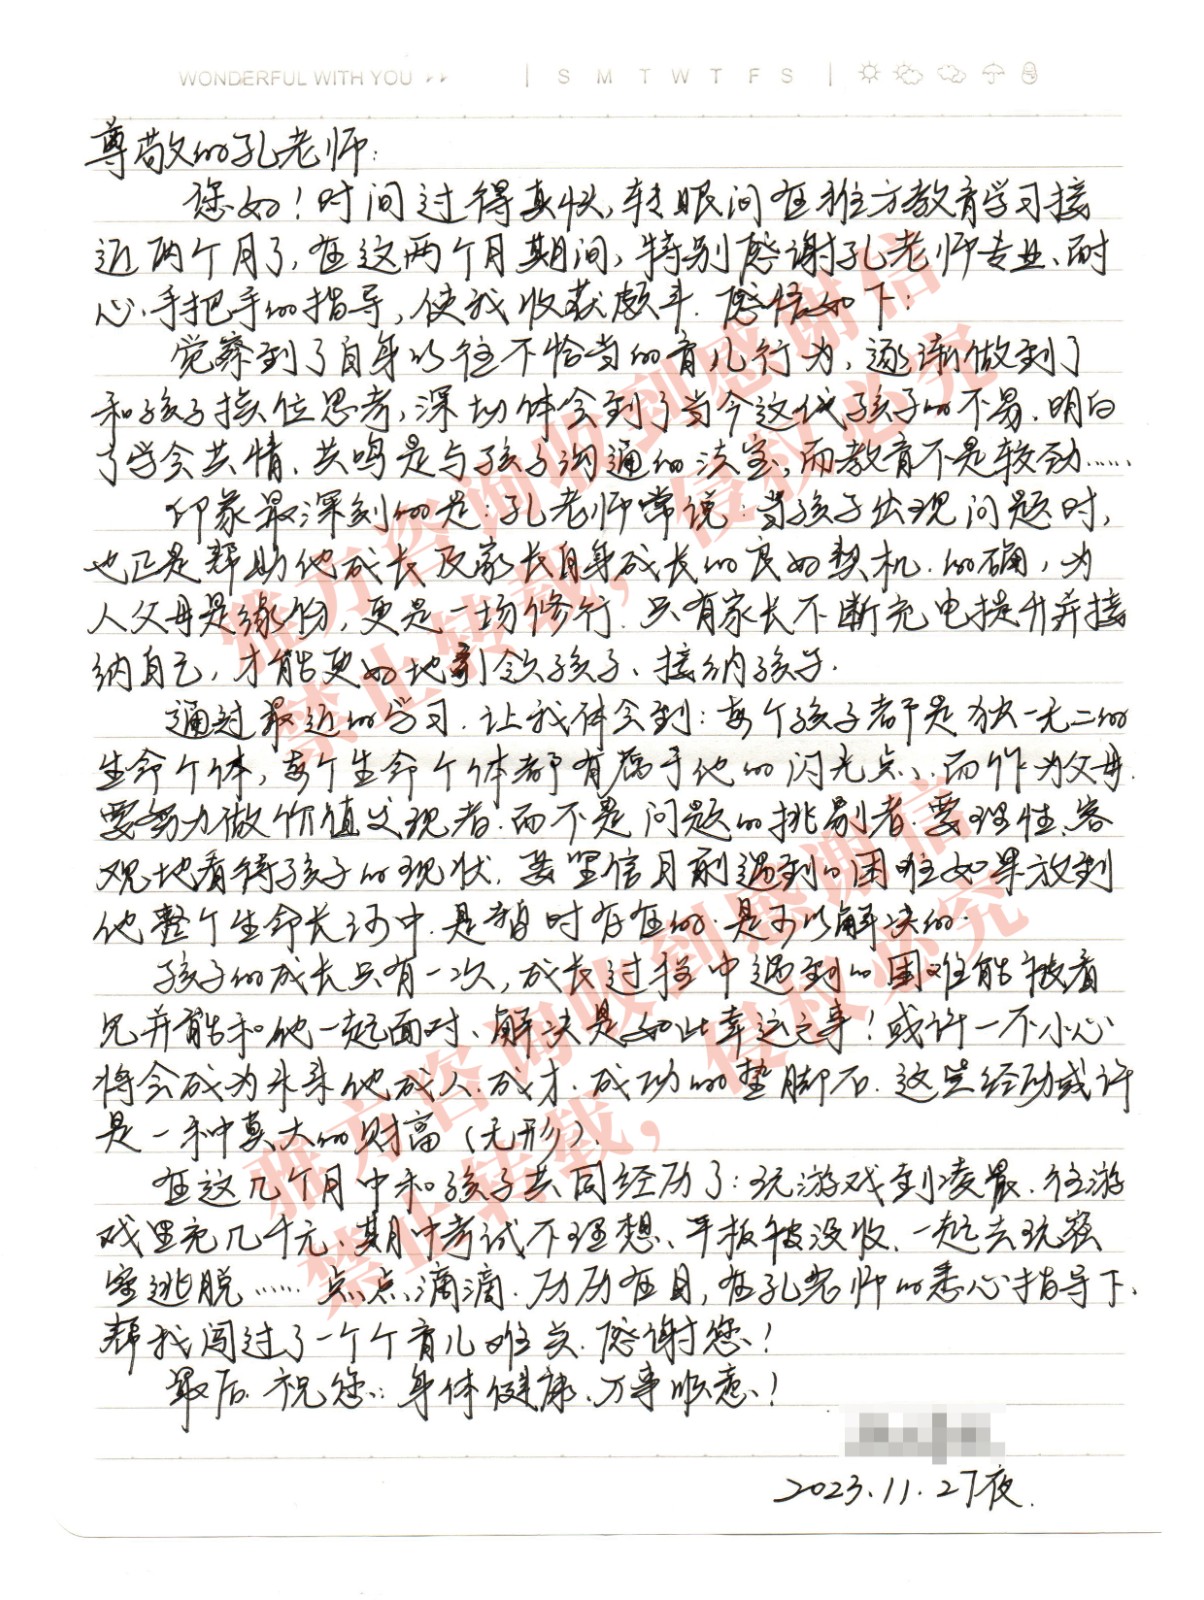 WONDERFUL WITH YOU
S M T W T F S
尊敬的孔老师:
您好!时间过得真快,转眼间在雅方教育学习接
近两个月了,在这两个月期间,特别感谢孔老师专业、耐
心、手把手的指导,使我收获颇丰.感悟如下:
觉察到了自身以往不恰当的育儿行为,逐渐做到了
和孩子换位思考,深切体会到了当今这代孩子的不易.明白
了学会共情、共鸣是与孩子沟通的法宝,而教育不是较劲……
印象最深刻的是:孔老师常说:当孩子出现问题时,
也正是帮助他成长及家长自身成长的良好契机.的确,为
人父母是缘份,更是一场修行.只有家长不断充电提升并接
纳自己,才能更好地引领孩子、接纳孩子.
通过最近的学习.让我体会到:每个孩子都是独一无二的
生命个体,每个生命个体都有属于他的闪光点、而作为父母.
要努力做价值发现者.而不是问题的挑剔者.要理性、客
观地看待孩子的现状.要坚信目前遇到的困难如果放到
他整个生命长河中.是暂时存在的.是可以解决的.
孩子的成长只有一次,成长过程中遇到的困难能被看
见并能和他一起面对、解决是如此幸运之事!或许一不小心
将会成为未来他成人.成才.成功的垫脚石.这些经历或许
是一种莫大的财富(无形).
在这几个月中和孩子共同经历了:玩游戏到凌晨.往游
戏里充几千元、期中考试不理想、平板被没收、一起去玩密
室逃脱……点点滴滴.历历在目,在孔老师的悉心指导下、
帮我闯过了一个个育儿难关.感谢您!
最后.祝您:身体健康、万事顺意!
2023.11.27夜.
雅方咨询收到感谢信
禁止转载,侵权必究
雅方咨询收到感谢信
禁止转载,侵权必究